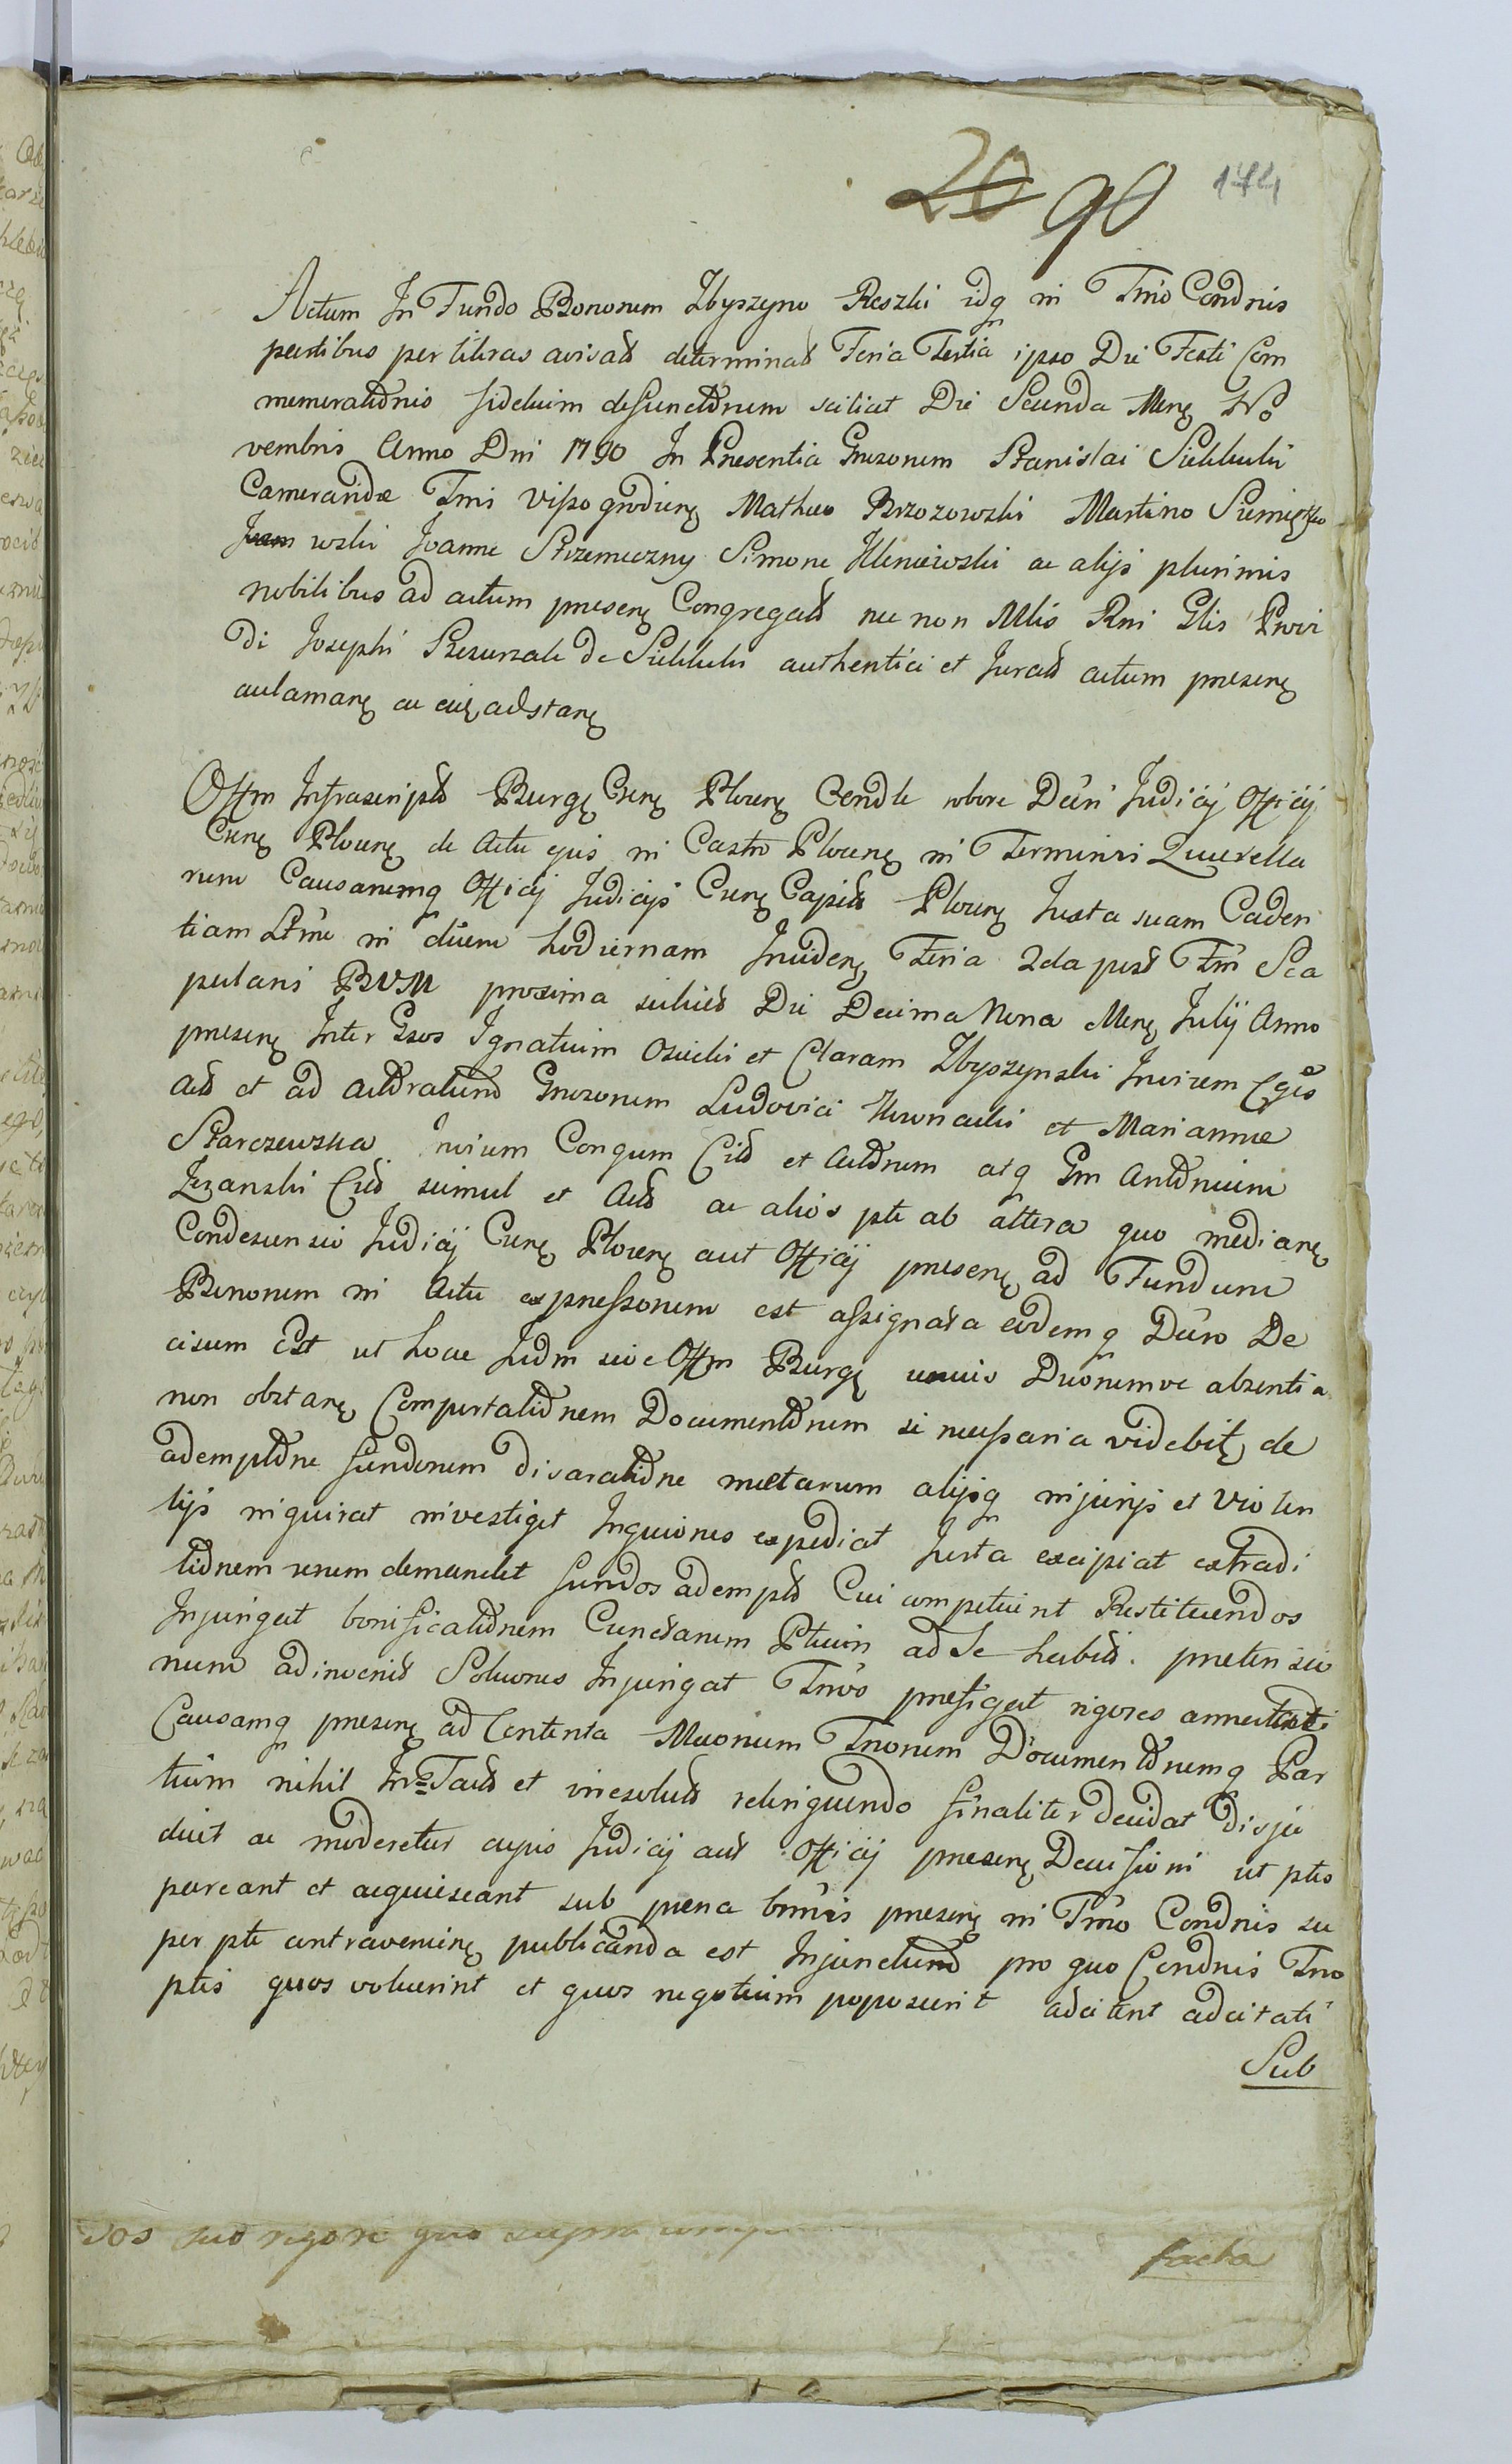 20 90 174
Actum In Fundo Bonorum Zbyszyno Reszki idq in Tmo Condnis
partibus per literas avisats determinats Feria Tertia ipso Die Festi Com
memorationis fidelium defunctorum scilicet Die Secunda Mens No
vembris Anno Dni 1790 In Presentia Gnrorum Stanislai Sulkulii
Camerarida Tms Viszogrodiens Matheo Brzozowski Martino
wski Joanne Strzemeczny Simone Kleniewski ac alijs plurimis
nobilibus ad actum presens Congregats nec non Mlis Rni Glis Provi
di Josephi de authentici et Jurats actum presens
aclamans ac eiq adstans
Offm Infrascripts Burgs Cens Plocens Condle robore Dcri Judicij Officij
Cens Plocens de Actu ejus in Castro Plocens in Terminis Querella
rum Causarumq Officij Judicijs Cens Capits Plocens Juxta suam Caden
tiam Ltme in diem hodiernam Inciden Feria 2da post Fm Sca
pularis BVM proxima scilicet Die Decima Nona Mens Julij Anno
presens Inter Gsos Ignatium Osiecki et Claram Zbyszynski Invicem Cgles
Acts et ad actoratum Gnrorum Ludovici et Marianne
Starczewska Conjugum Cits et Actorum atq Gm Antonium
Cits simul et Acts ac alios pte ab altera quo medians
Condescensio Judicij Cens Plocens aut Officij presens ad Fundum
Bonorum in Actu expressorum est assignata eodemq Dcro De
cisum Est ut hocce Judm sive Offm Burgs unius Duorumve absentia
non obstans Comportationem Documentorum si necessaria videbits de
ademptione fundorum disaratione metarum alijsq injurijs et violen
tijs inquirat investiget Inquiones expediat Juxta excipiat extradi
tionem rerum demandet fundos adempts Cui competierint Restituendos
Injungat bonificationem Cunctarum Ptium ad Se habits pretensio
num adinvenit Soluones Injungat Tmos prefigat rigores
Causamq presens ad Contenta Mconum Tnorum Documentorumq Par
tium nihil Intacts et iresoluts relinquendo finaliter decidat Disju
dicet ac moderetur cujus Judicij aut Officij presens Decisioni ut ptes
pareant et acquiescant sub pena presens in Tmo Condnis su
per pte contraveniens publicanda est Injunctum pro quo Condnis Tno
ptes quos voluerint et quos negotium poposcerit adcitent adcitati
Sub
sub rigore quo supra
facta